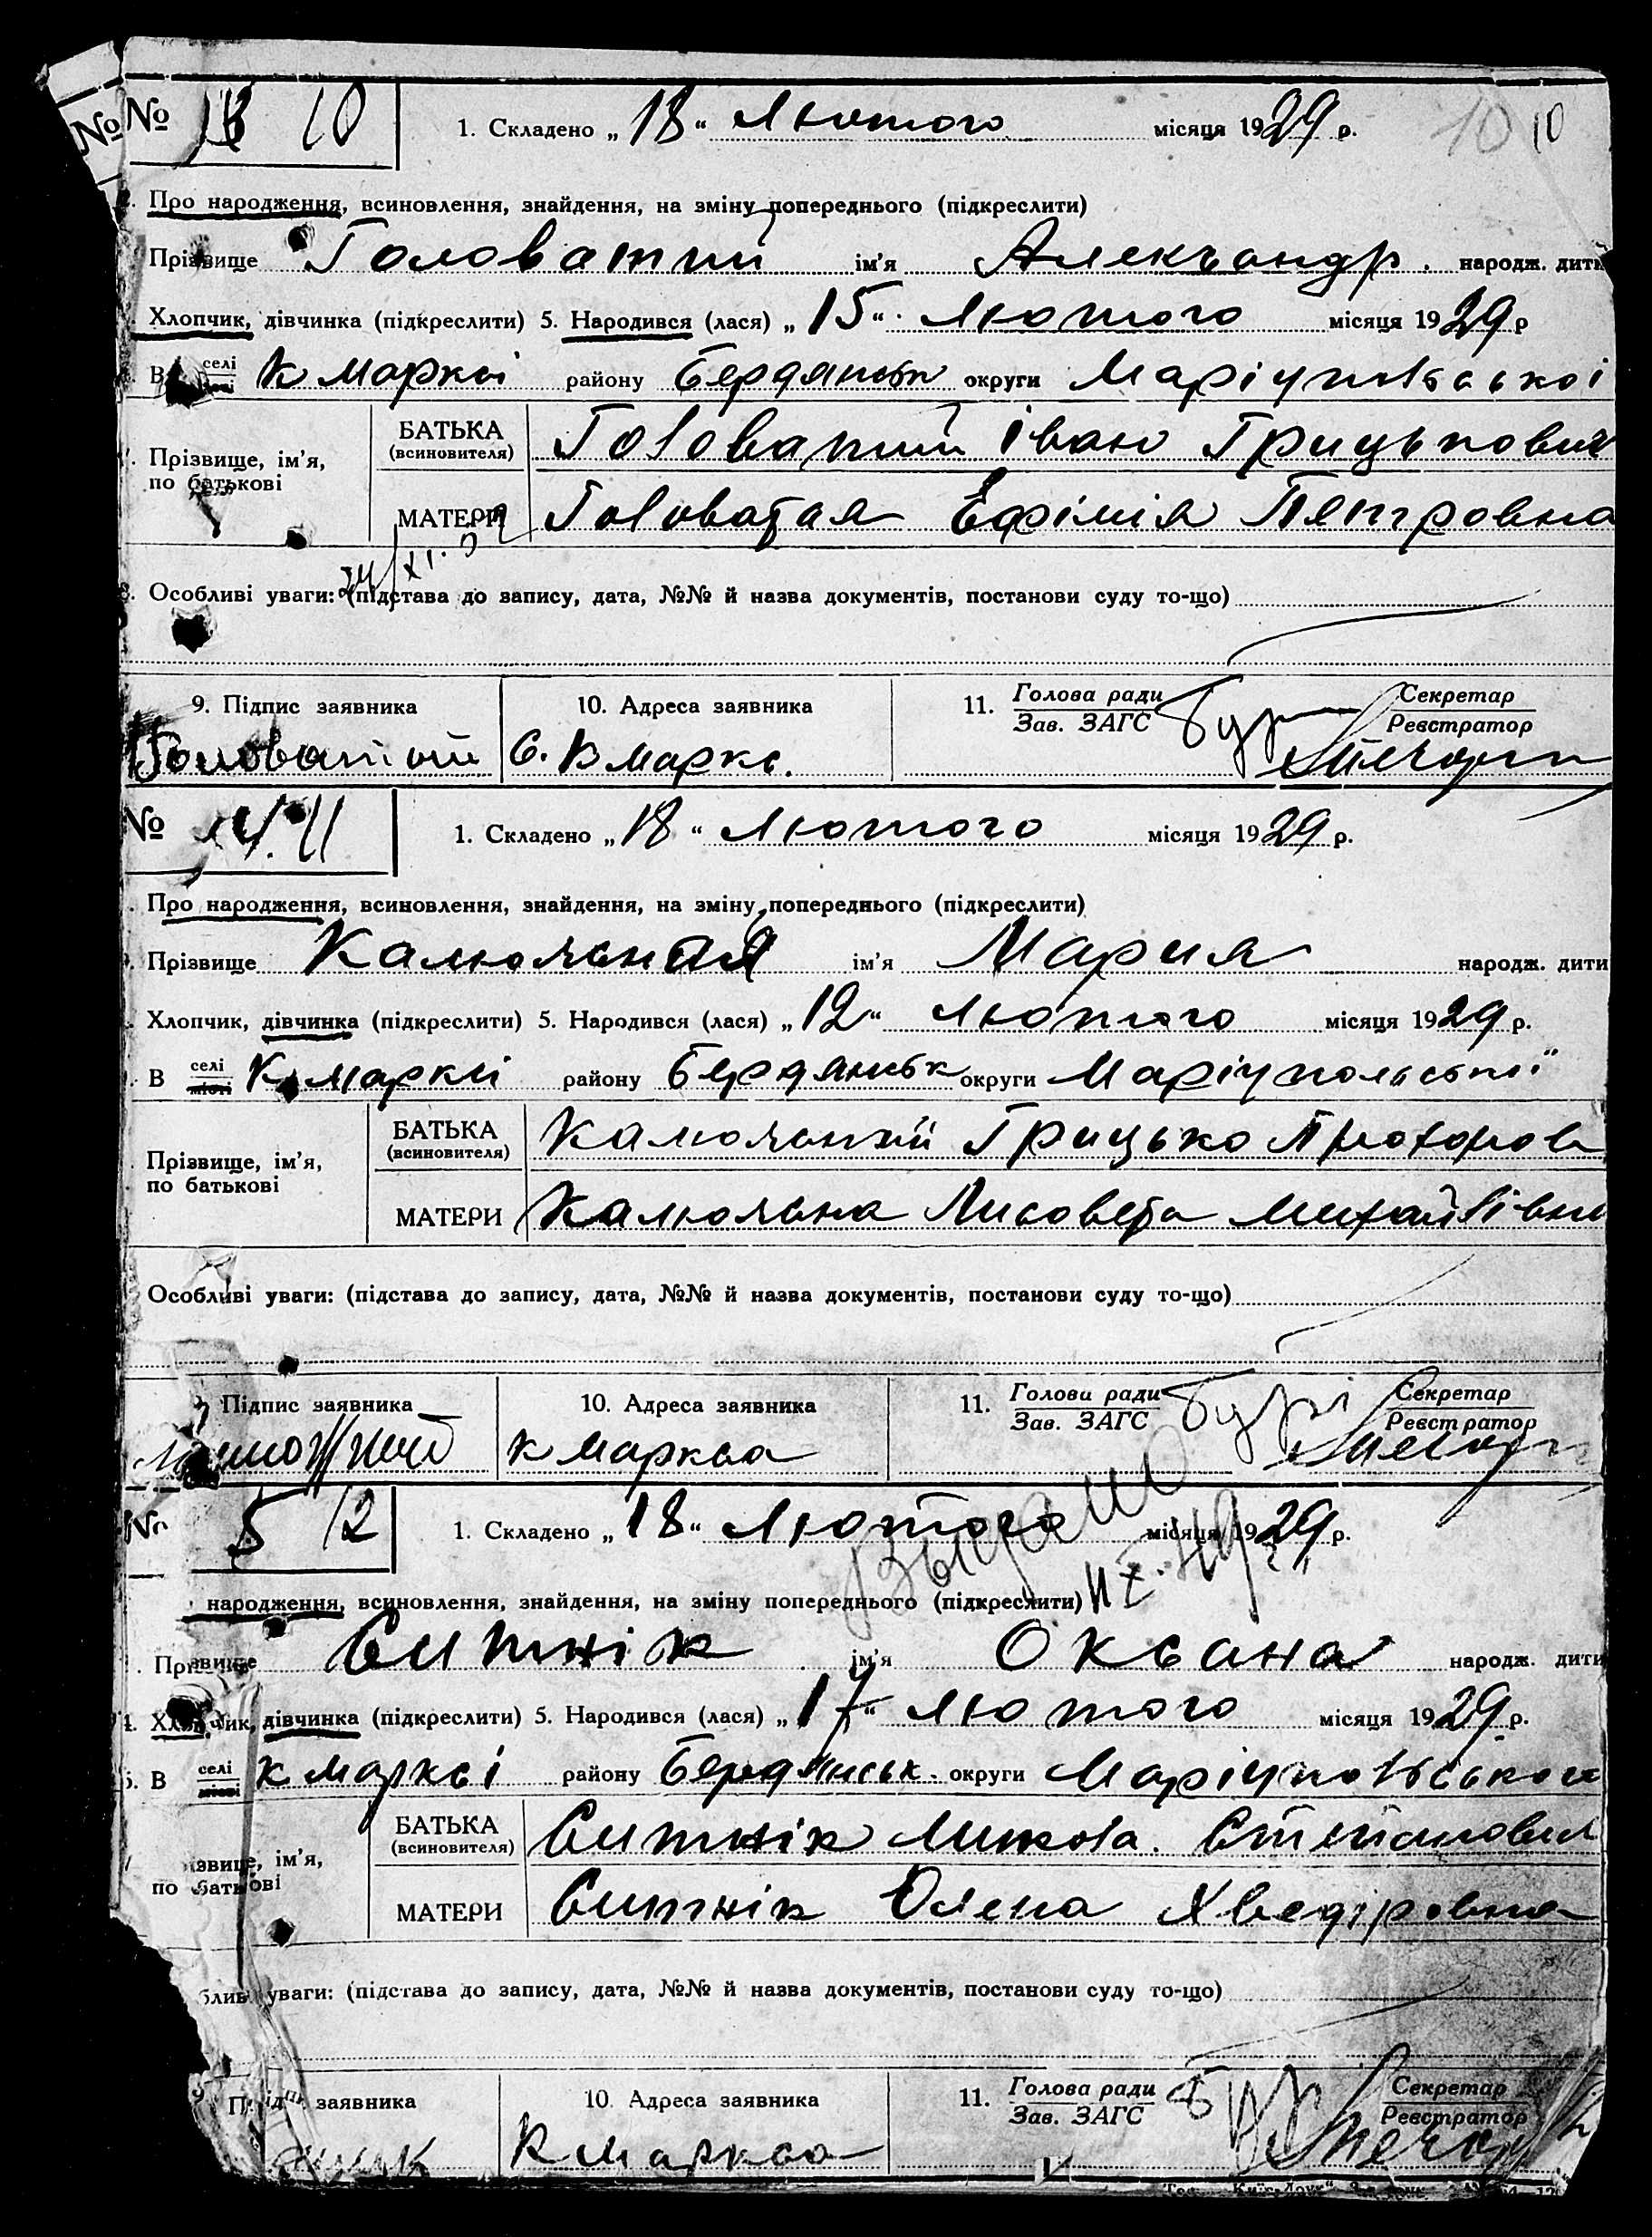 №
№ 10
1. Складено „18“ Лютого місяця 1929 р.
10 10
Про народження, всиновлення, знайдення, на зміну попереднього (підкреслити)
Прізвище Головатий ім'я Александр. народж. дити
Хлопчик, дівчинка (підкреслити) 5. Народився (лася) „15“ Лютого місяця 1929 р
В селі К Марксі району Бердянськ округи Маріупільської
Прізвище, ім'я, по батькові
БАТЬКА (всиновителя) Головатий Іван Грицькович
МАТЕРИ Головатая Ефімія Пятровна
24/XI.
8. Особливі уваги: (підстава до запису, дата, №№ й назва документів, постанови суду то-що)
9. Підпис заявника
10. Адреса заявника
11. Голова ради
Зав. ЗАГС
Секретар
Реєстратор
Головатий
С. К Маркс.
№ 4. 11
1. Складено „18“ Лютого місяця 1929 р.
Про народження, всиновлення, знайдення, на зміну попереднього (підкреслити)
Прізвище ім'я Мария народж. дити
Хлопчик, дівчинка (підкреслити) 5. Народився (лася) „12“ Лютого місяця 1929 р.
В селі місті К Марксі району Бердянськ округи Маріупольської
Прізвище, ім'я, по батькові
БАТЬКА (всиновителя) Грицько Прохоров
МАТЕРИ Лисовета Михайлівна
Особливі уваги: (підстава до запису, дата, №№ й назва документів, постанови суду то-що)
Підпис заявника
10. Адреса заявника
11. Голова ради
Зав. ЗАГС
Секретар
Реєстратор
К Маркса
№ 5 12
1. Складено „18“ Лютого місяця 1929 р.
Выдано
народження, всиновлення, знайдення, на зміну попереднього (підкреслити)
Прізвище Ситнік ім'я Оксана народж. дити
4. Хлопчик, дівчинка (підкреслити) 5. Народився (лася) „17“ Лютого місяця 1929 р.
6. В селі місті К Марксі району Бердянськ. округи Маріупольського
ізвище, ім'я, по батькові
БАТЬКА (всиновителя) Ситнік Микола. Степанович
МАТЕРИ Ситнік Олена Хведіровна
уваги: (підстава до запису, дата, №№ й назва документів, постанови суду то-що)
9. Підпис заявника
10. Адреса заявника
11. Голова ради
Зав. ЗАГС
Секретар
Реєстратор
К Маркса